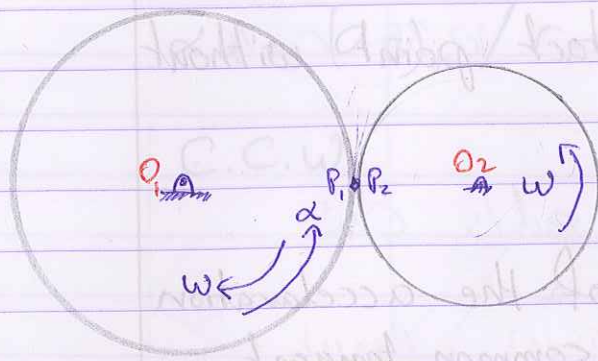 O₁ P₁ P₂ O₂ ω
α
ω